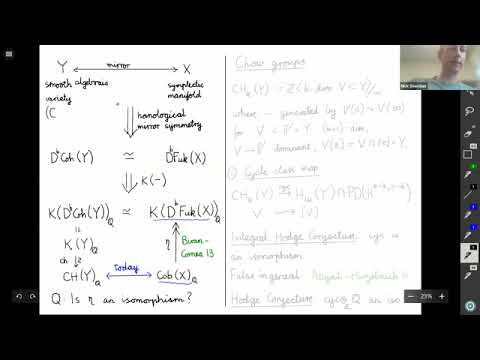 Y mirror X
smooth algebraic variety
(C
symplectic manifold
homological mirror symmetry
DᵇCoh(Y) ≃ DᵇFuk(X)
K(-)
K(DᵇCoh(Y))_Q ≃ K(DᵇFuk(X))_Q
K(Y)_Q
η
Biran-Cornea 13
ch
CH(Y)_Q today Cob(X)_Q
Q: Is η an isomorphism?
Chow groups
CH_k(Y) := Z⟨k-dim. V ⊂ Y⟩/~
where ~ generated by V(0) ~ V(∞)
for V ⊂ P¹ × Y (k+1)-dim,
V → P¹ dominant, V(z) = V ∩ {z} × Y.
① Cycle class map
V ⟼ [V]
Integral Hodge Conjecture cyc is
an isomorphism.
False in general Atiyah-Hirzebruch
Hodge Conjecture cyc⊗Q an iso
Nick Sheridan
23%